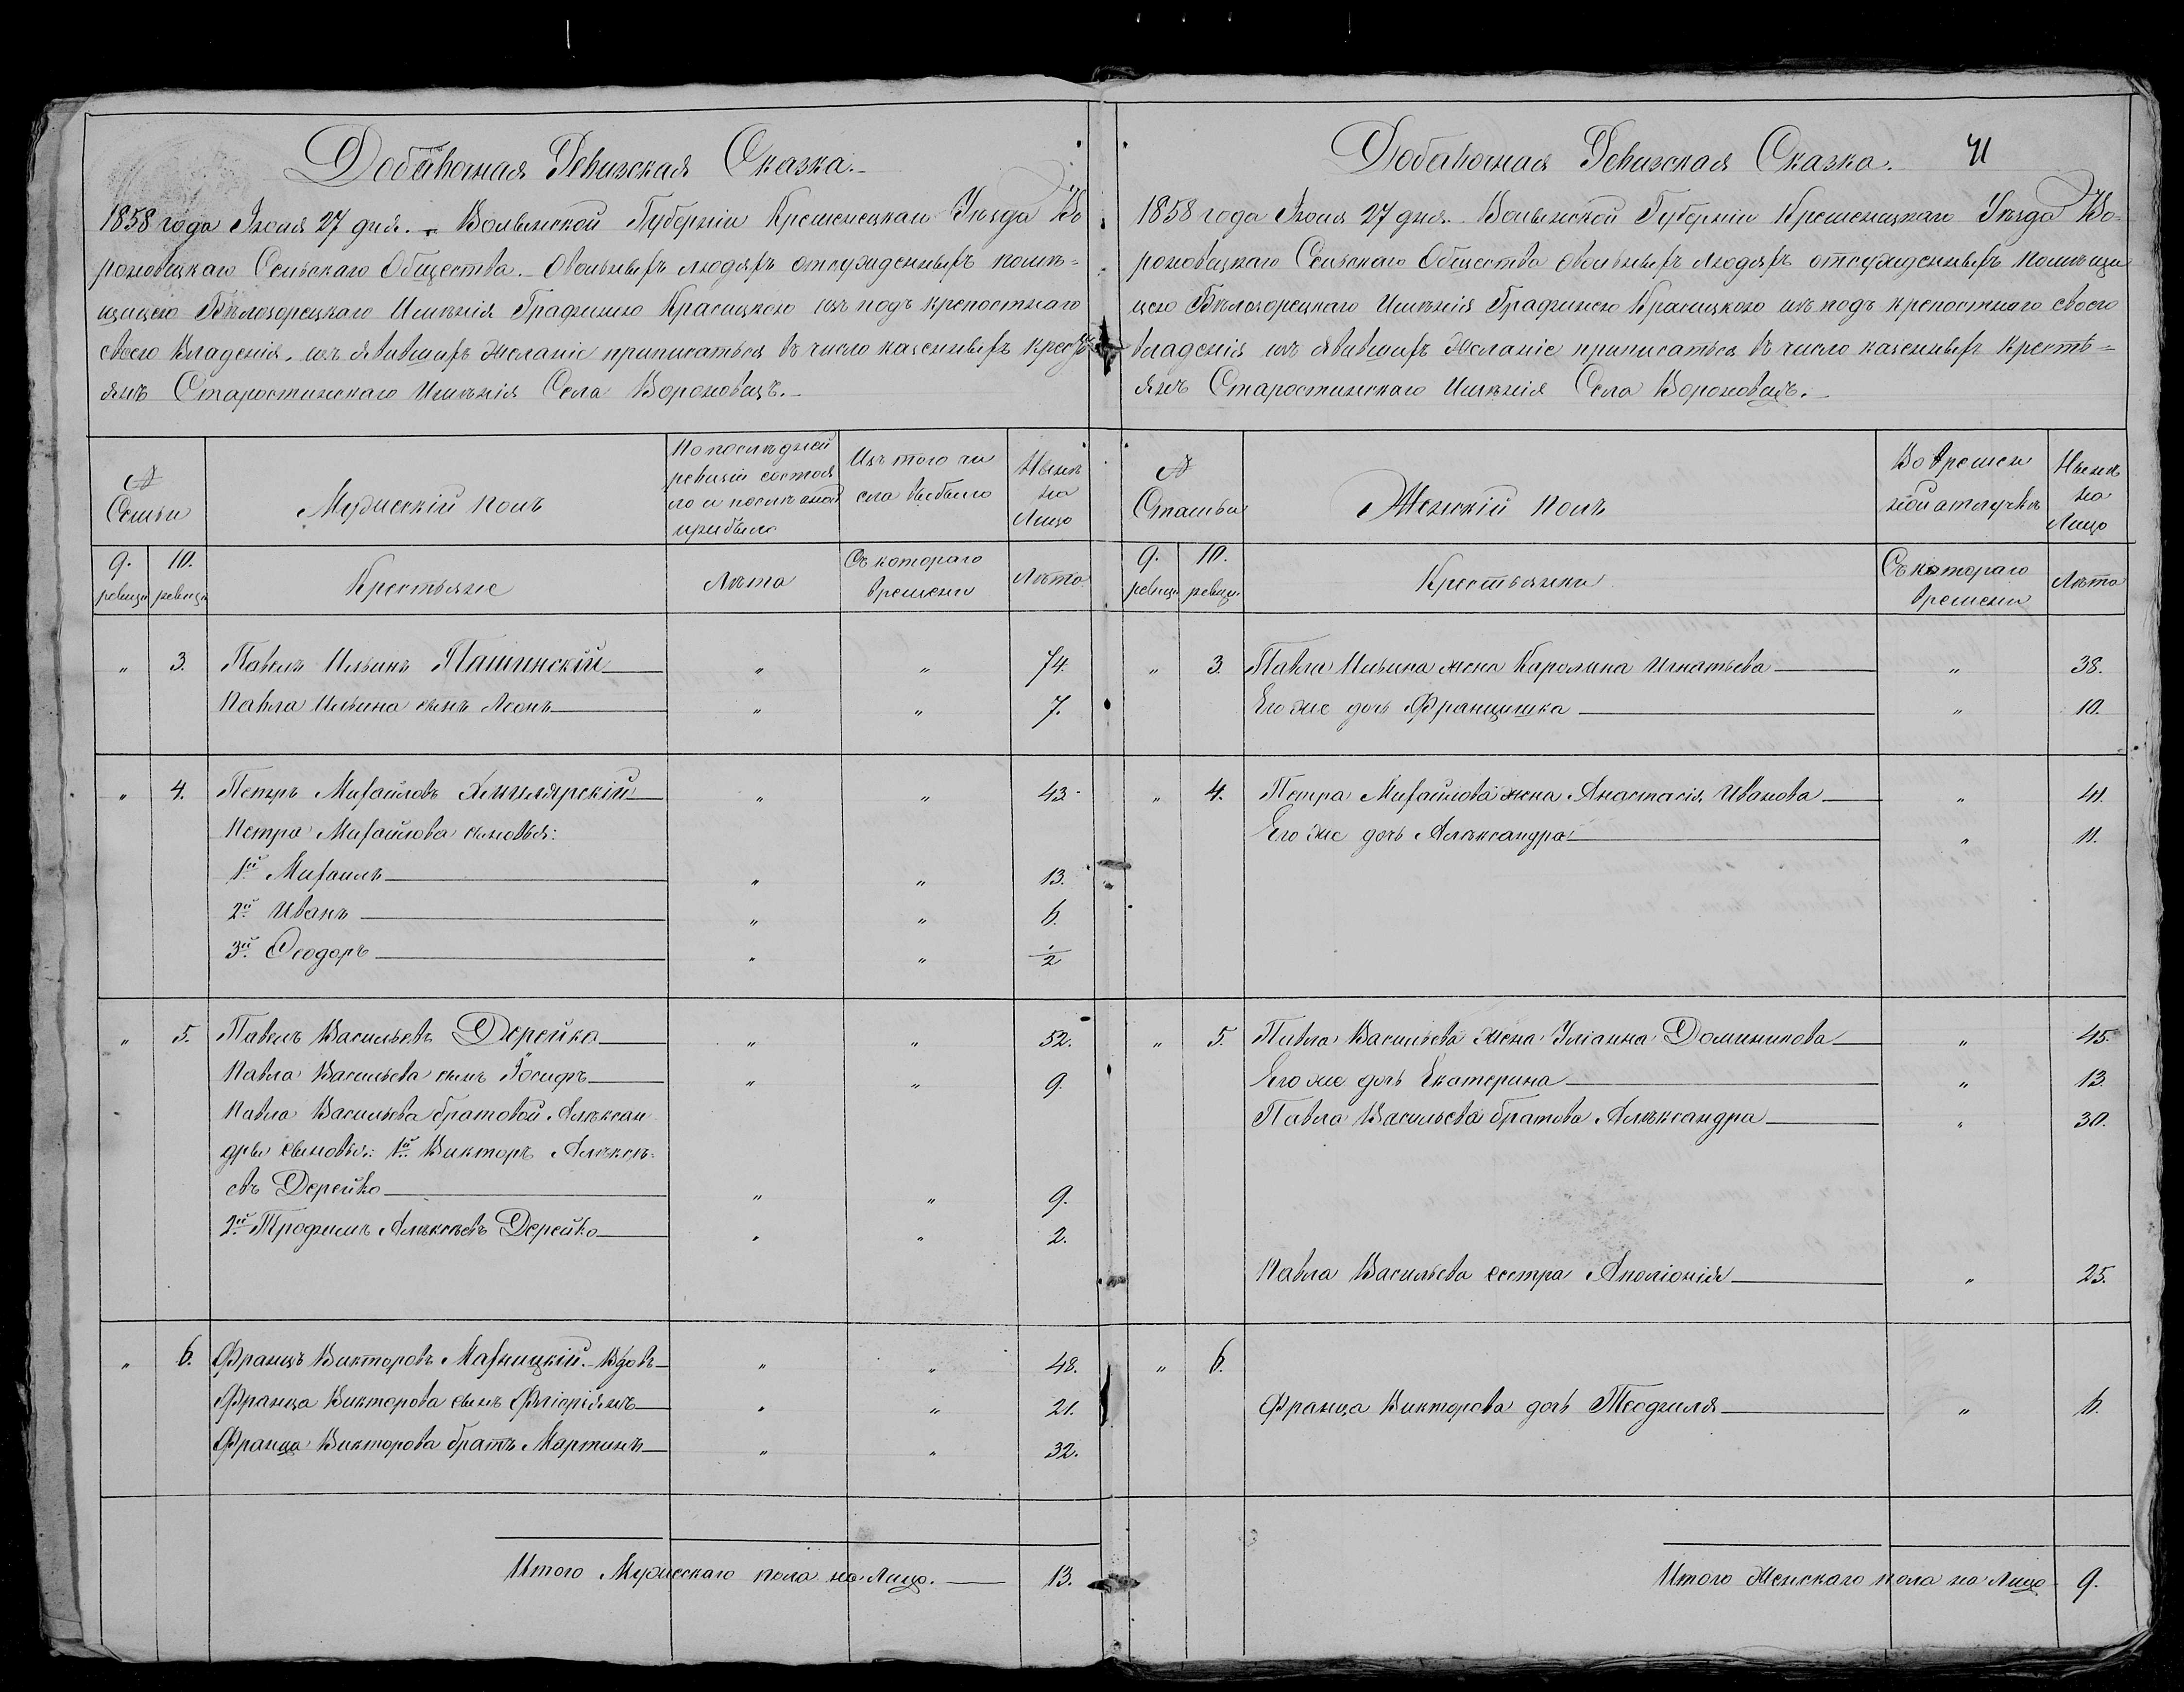 Добавочная Ревизская Сказка.
1858 года Июля 27 дня. Волынской Губерніи Кременецкаго Уѣзда Во
роновецкаго Сельскаго Общества. О вольныхъ людяхъ отсужденныхъ помѣ=
щицею Бѣлозорецкаго Имѣнія Графинею Красицкою изъ подъ крепостнаго
своего Владенія, изъявившихъ желаніе приписаться въ число казенныхъ кресть
янъ Старостинскаго Имѣнія Села Вороновецъ.
№ Семьи
Мужескій полъ
По послѣдней
ревизіи состоя
ло и послѣ оной
прибыло
Изъ того чи
сла выбыло
Нынѣ
на
Лицо
9. ревизіи
10. ревизіи
Крестьяне
Лѣта
Съ котораго
времени
Лѣта
" 3. Павелъ Ильинъ Пашинскій " " 74.
Павла Ильина сынъ Леонъ " " 7.
" 4. Петръ Михайловъ Хмилярскій " " 43.
Петра Михайлова сыновья:
1й Михаилъ " " 13.
2й Иванъ " " 6.
3й Феодоръ " " ½
" 5. Павелъ Васильевъ Дерейко " " 52.
Павла Васильева сынъ Іосифъ " " 9.
Павла Васильева братовой Алѣксан
дры сыновья: 1й Викторъ Алѣксѣ=
евъ Дерейко " " 9.
2й Трофимъ Алѣксѣевъ Дерейко " " 2.
" 6. Францъ Викторовъ Махницкій. Вдовъ " " 48.
Франца Викторова сынъ Флоріянъ " " 21.
Франца Викторова братъ Мартинъ " " 32.
Итого Мужескаго пола на Лицо. 13.
Добавочная Ревизская Сказка. 41
1858 года Июля 27 дня. Волынской Губерніи Кременецкаго Уѣзда Во-
роновецкаго Сельскаго Общества о вольныхъ людяхъ отсужденныхъ помѣщи
цею Бѣлозорецкаго Имѣнія Графинею Красицкою изъ подъ крепостнаго своего
владенія изъявившихъ желаніе приписаться въ число казенныхъ кресть=
янъ Старостинскаго Имѣнія Села Вороновецъ.
№
Женскій полъ
Во времен
ной отлучкѣ
Нынѣ
на
Лицо
9. ревизіи
10. ревизіи
Крестьянки
Съ котораго
времени
Лѣта
" 3. Павла Ильина жена Каролина Игнатьева " 38.
Его же дочь Францишка " 10.
" 4. Петра Михайлова жена Анастасія Иванова " 41.
Его же дочь Алѣксандра " 11.
" 5. Павла Васильева жена Уліанна Доминикова " 45.
Его же дочь Екатерина " 13.
Павла Васильева братова Алѣксандра " 30.
Павла Васильева сестра Аполіонія " 25.
" 6.
Франца Викторова дочь Теофиля " 6.
Итого Женскаго пола на Лицо 9.